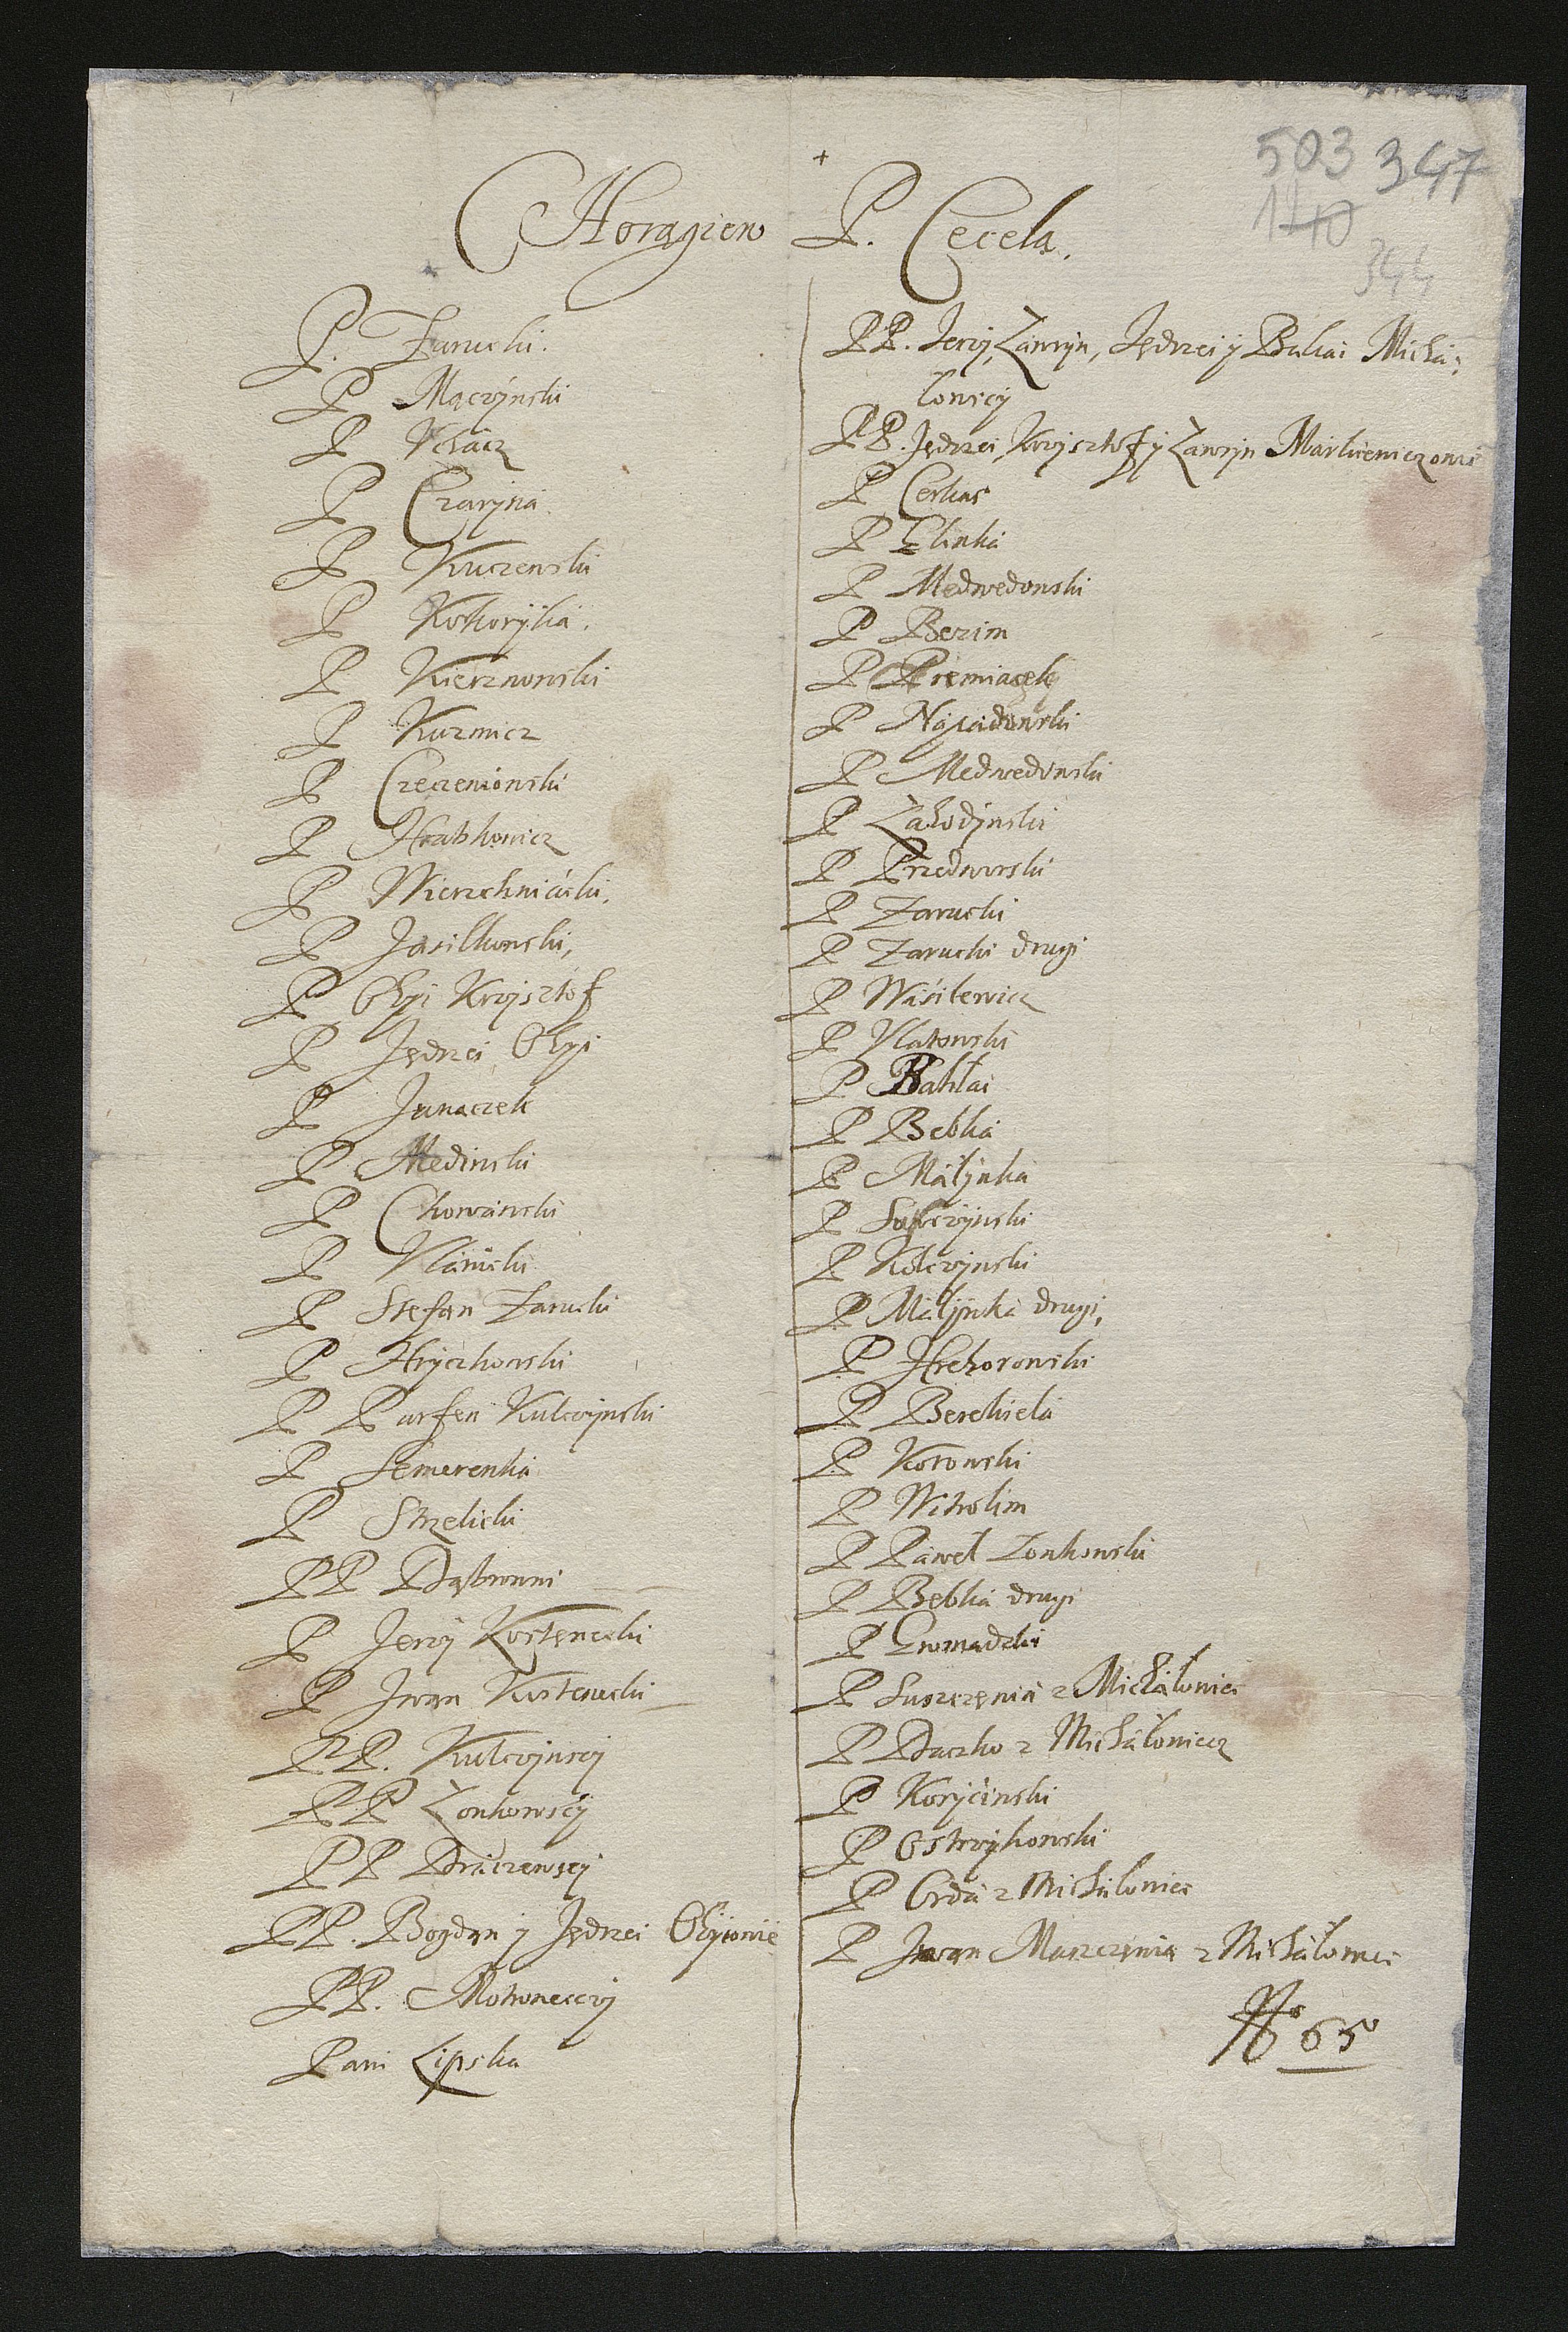 +
503 347
140
344
Chorągiew P. Cecela.
P. Zarucki.
P Mączÿnski
P Vchacz
P Czarÿna
P Kuczewski
P Kokorÿka.
P Kierznowski
P Kuzmicz
P Czeczeniowski
P Hrabkowicz
P Wierzchniácki.
P Jasilkowski,
P Ohÿi Krzÿsztof
P Jędrzei Ohÿi
P Junaczek
P Medinski
P Chowánski
P Vlánicki
P Stefan Zarucki
P Hrÿczkowski
P Parfen Kulczÿnski
P Semerenka
P Strzelicki
PP Dąbrowni
P Jerzÿ Kostenecki
P Jwan Kostenecki
PP. Kulczÿnscÿ
PP Zonkowscÿ
PP Driczewscÿ
PP. Bogdan ÿ Jędrzei Ohÿiowie
PP. Motowesczÿ
Pani Lipska
PP. Jerzÿ, Lawrÿn, Jędrzei ÿ Bakai Michá:
łowscÿ
PP. Jędrzei, Krzÿsztof ÿ Lawrÿn Markiewiczowie
P Cerkas
P Hlinka
P Medwedowski
P Berim
P Premiaçek
P Nápadowski
P Medwedowski
P Záhodÿnski
P Przedworski
P Zarucki
P Zarucki drugi
P Wásilewicz
P Vlatowski
P Bakłai
P Bebka
P Máłÿnka
P Sawczÿnski
P Kolczÿnski
P Máłÿnka drugi,
P Hrehorowski
P Berckiela
P Kosowski
P Witwolim
P Páweł Zonkowski
P Bebka drugi
P Gromadzki
P Suszczenia z Micháłowicz
P Daczko z Micháłowicz
P Korÿcinski
P Ostrzÿkowski
P Orda z Michálowicz
P Jwan Maszczenia z Micháłowicz
No 65